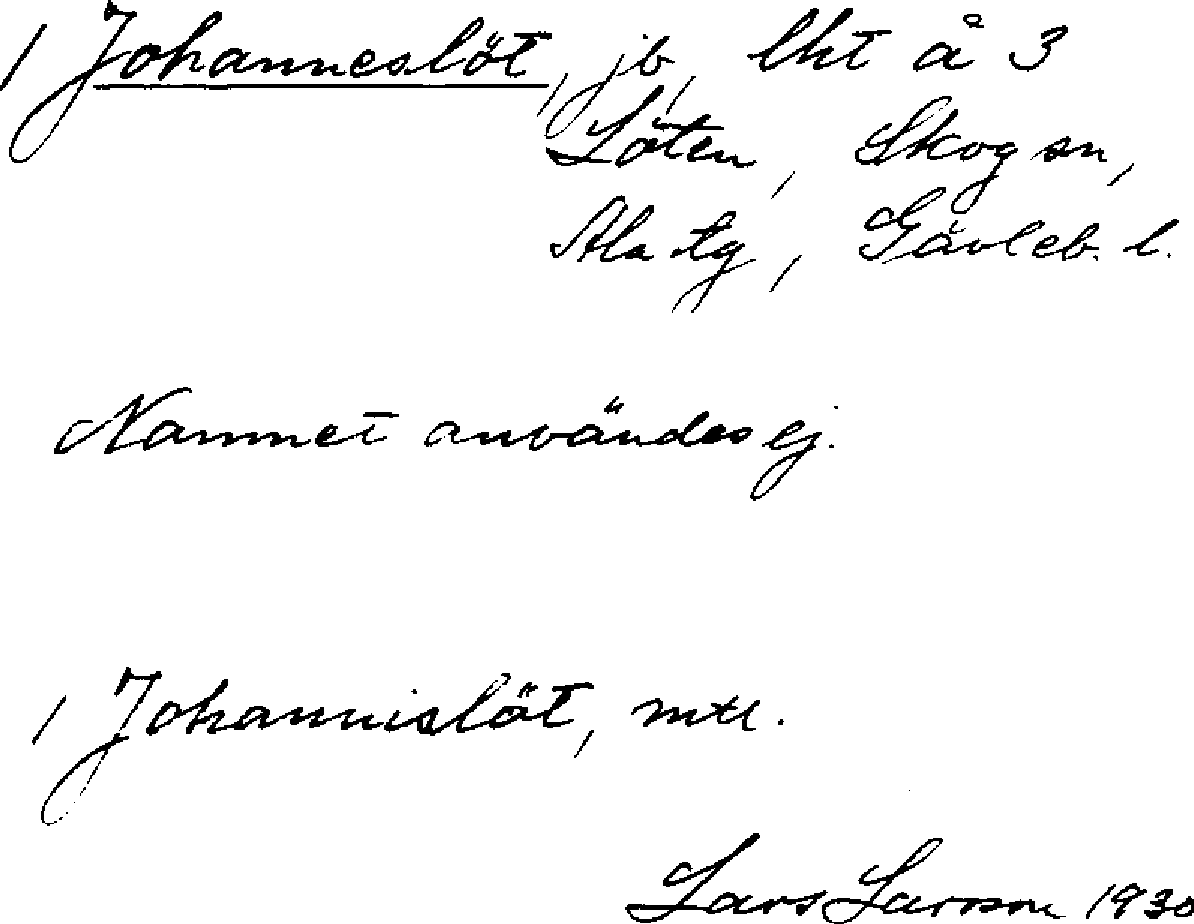 / Johanneslöt, jb, lht å 3
Löten, Skog sn,
Ala tg, Gävleb. l.
Namnet användes ej.
/ Johannislöt, mtl.
Lars Larsson 1930